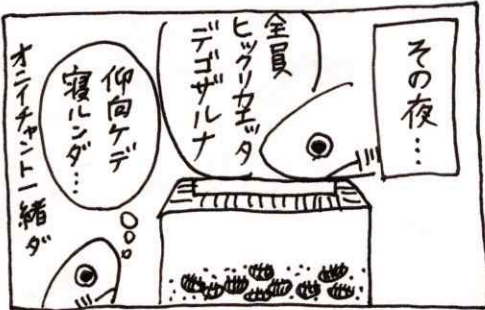 その夜…
全員
ヒックリカエッタ
デゴザルナ
仰向ケデ
寝ルンダ…
オニイチャント一緒ダ